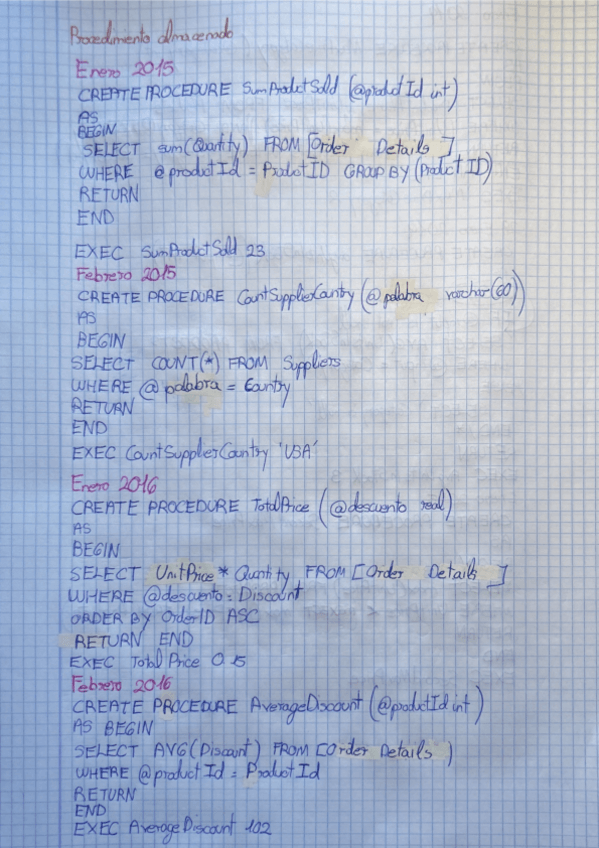 Procedimiento almacenado
Enero 2015
CREATE PROCEDURE SumProductSold (@productId int)
AS
BEGIN
SELECT sum(Quantity) FROM [Order Details]
WHERE @productId = ProductID GROUP BY (ProductID)
RETURN
END
EXEC SumProductSold 23
Febrero 2015
CREATE PROCEDURE CountSupplierCountry (@palabra varchar(60))
AS
BEGIN
SELECT COUNT(*) FROM Suppliers
WHERE @palabra = Country
RETURN
END
EXEC CountSupplierCountry 'USA'
Enero 2016
CREATE PROCEDURE TotalPrice (@descuento real)
AS
BEGIN
SELECT UnitPrice * Quantity FROM [Order Details]
WHERE @descuento = Discount
ORDER BY OrderID ASC
RETURN END
EXEC TotalPrice 0.15
Febrero 2016
CREATE PROCEDURE AverageDiscount (@productId int)
AS BEGIN
SELECT AVG(Discount) FROM [Order Details]
WHERE @productId = ProductId
RETURN
END
EXEC AverageDiscount 102